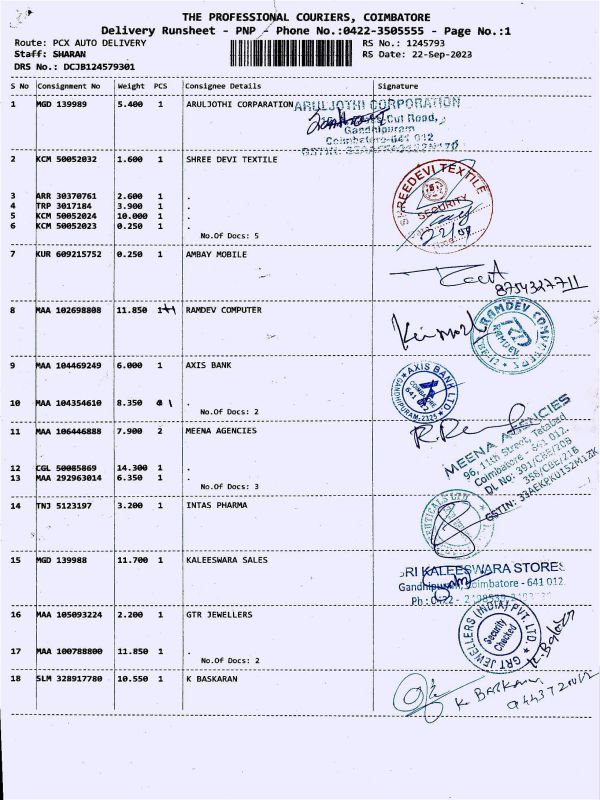 THE PROFESSIONAL COURIERS, COIMBATORE
Delivery Runsheet - PNP - Phone No.:0422-3505555 - Page No.:1
Route: PCX AUTO DELIVERY RS No.: 1245793
Staff: SHARAN RS Date: 22-Sep-2023
DRS No.: DCJB124579301
S No Consignment No Weight PCS Consignee Details Signature
1 MGD 139989 5.400 1 ARULJOTHI CORPARATION
ARULJOTHI CORPORATION
Cut Road,
Gandhipuram
Coimbatore-641 012
2 KCM 50052032 1.600 1 SHREE DEVI TEXTILE
SHREEDEVI TEXTILE
SECURITY
22/09
3 ARR 30370761 2.600 1 .
4 TRP 3017184 3.900 1 .
5 KCM 50052024 10.000 1 .
6 KCM 50052023 0.250 1 .
No.Of Docs: 5
7 KUR 609215752 0.250 1 AMBAY MOBILE
8754327711
8 MAA 102698808 11.850 1+1 RAMDEV COMPUTER
RAMDEV COMPUTERS
RD
RAMDEV
CBE-12
9 MAA 104469249 6.000 1 AXIS BANK
AXIS BANK LTD
COIMBATORE
641 012
GANDHIPURAM
10 MAA 104354610 8.350 1
No.Of Docs: 2
11 MAA 106446888 7.900 2 MEENA AGENCIES
MEENA AGENCIES
96, 11th Street, Tatabad
Coimbatore - 641 012.
DL No: 391/CBE/20B
358/CBE/21B
GSTIN: 33AEKPK0152M1ZK
12 CGL 50085869 14.300 1 .
13 MAA 292963014 6.350 1 .
No.Of Docs: 3
14 TNJ 5123197 3.200 1 INTAS PHARMA
15 MGD 139988 11.700 1 KALEESWARA SALES
SRI KALEESWARA STORES
Gandhipuram, Coimbatore - 641 012.
Ph : 0422 -
16 MAA 105093224 2.200 1 GTR JEWELLERS
GRT JEWELLERS (INDIA) PVT. LTD.
Security
Checked
17 MAA 100788800 11.850 1 .
No.Of Docs: 2
18 SLM 328917780 10.550 1 K BASKARAN
K BASKARAN